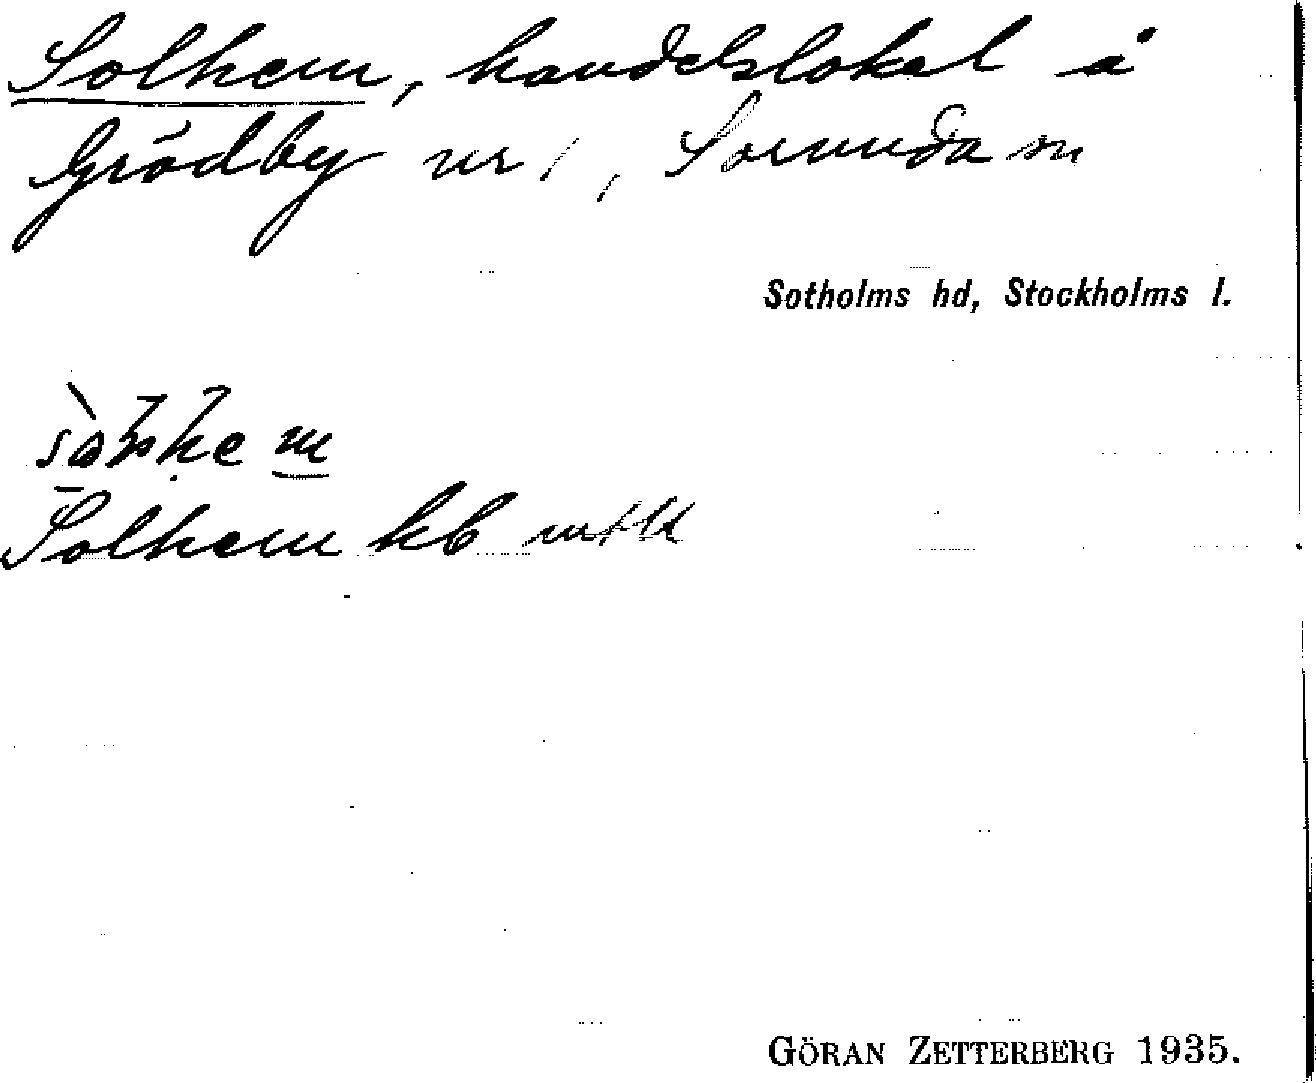 Solhem, handelslokal å
Grödby nr 1, Sorunda sn
Sotholms hd, Stockholms l.
Solhem kb
GÖRAN ZETTERBERG 1935.